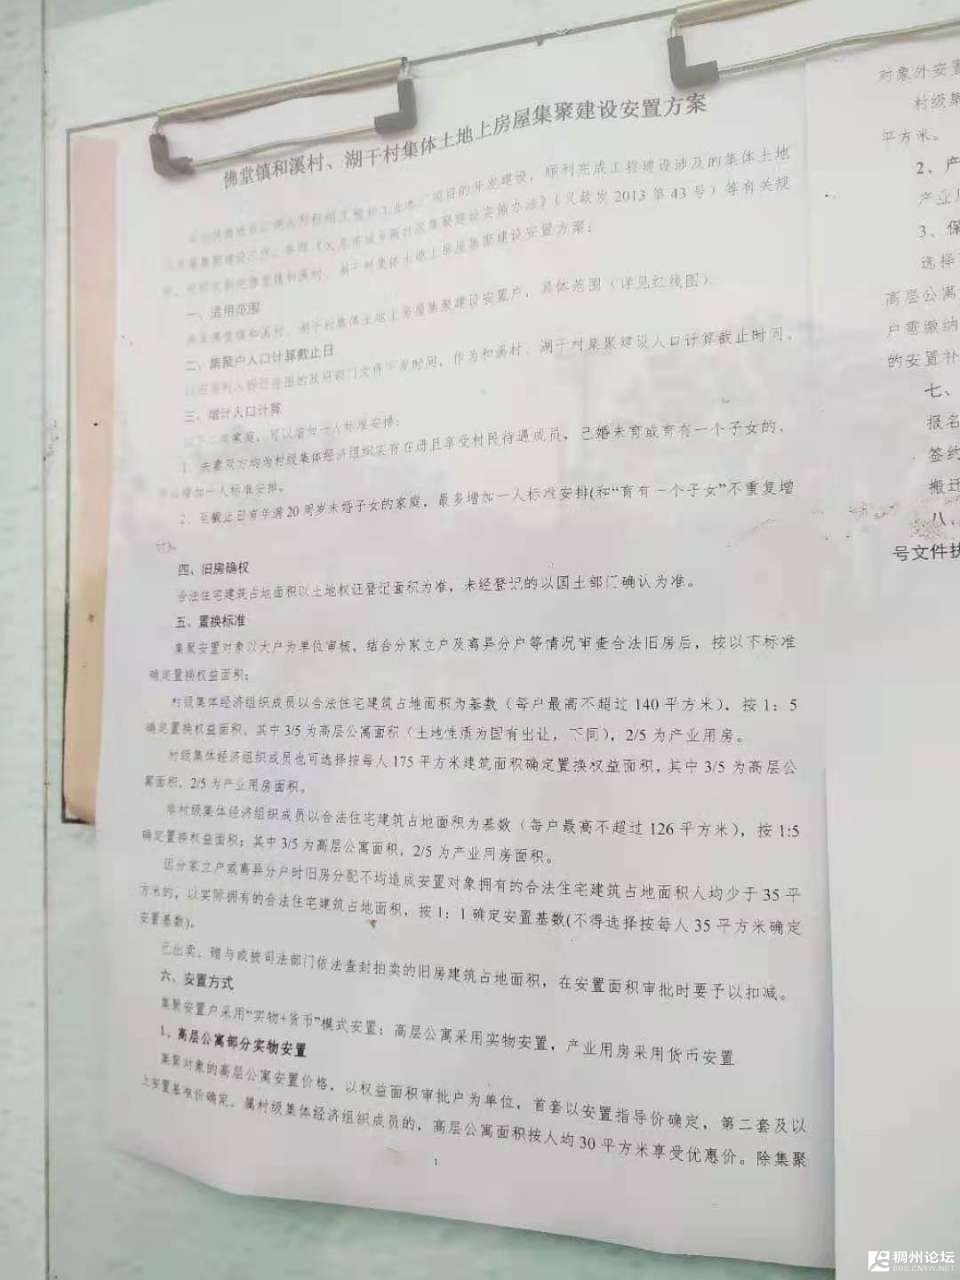 佛堂镇和溪村、湖干村集体土地上房屋集聚建设安置方案
项目的开发建设，顺利完成工程建设涉及的集体土地
集聚建设实施办法》（义政发2013第43号）等有关规
湖干村集体土地上房屋集聚建设安置方案：
一、适用范围
佛堂镇和溪村、湖干村集体土地上房屋集聚建设安置户，具体范围（详见红线图）。
二、集聚户人口计算截止日
的政府部门文件下发时间，作为和溪村、湖干村集聚建设人口计算截止时间。
三、增计人口计算
家庭，可以增加一人标准安排：
1、夫妻双方均为村级集体经济组织实有在册且享受村民待遇成员，已婚未育或育有一个子女的，
增加一人标准安排。
2、至截止日有年满20周岁未婚子女的家庭，最多增加一人标准安排(和“育有一个子女”不重复增
四、旧房确权
合法住宅建筑占地面积以土地权证登记面积为准，未经登记的以国土部门确认为准。
五、置换标准
集聚安置对象以大户为单位审核，结合分家立户及离异分户等情况审查合法旧房后，按以下标准
确定置换权益面积：
村级集体经济组织成员以合法住宅建筑占地面积为基数（每户最高不超过140平方米），按1：5
确定置换权益面积，其中3/5为高层公寓面积（土地性质为国有出让，下同），2/5为产业用房。
村级集体经济组织成员也可选择按每人175平方米建筑面积确定置换权益面积，其中3/5为高层公
寓面积，2/5为产业用房面积。
非村级集体经济组织成员以合法住宅建筑占地面积为基数（每户最高不超过126平方米），按1:5
确定置换权益面积；其中3/5为高层公寓面积，2/5为产业用房面积。
因分家立户或离异分户时旧房分配不均造成安置对象拥有的合法住宅建筑占地面积人均少于35平
方米的，以实际拥有的合法住宅建筑占地面积，按1：1确定安置基数(不得选择按每人35平方米确定
安置基数)。
已出卖、赠与或被司法部门依法查封拍卖的旧房建筑占地面积，在安置面积审批时要予以扣减。
六、安置方式
集聚安置户采用“实物+货币”模式安置：高层公寓采用实物安置，产业用房采用货币安置
1、高层公寓部分实物安置
集聚对象的高层公寓安置价格，以权益面积审批户为单位，首套以安置指导价确定，第二套及以
上安置基准价确定。属村级集体经济组织成员的，高层公寓面积按人均30平方米享受优惠价。除集聚
1
对象外安置
村级集
平方米。
2、产
产业用
3、保
选择
高层公寓
户需缴纳
的安置补
七、
报名
签约
搬迁
八、
号文件执
稠州论坛
BBS.CNYW.NET